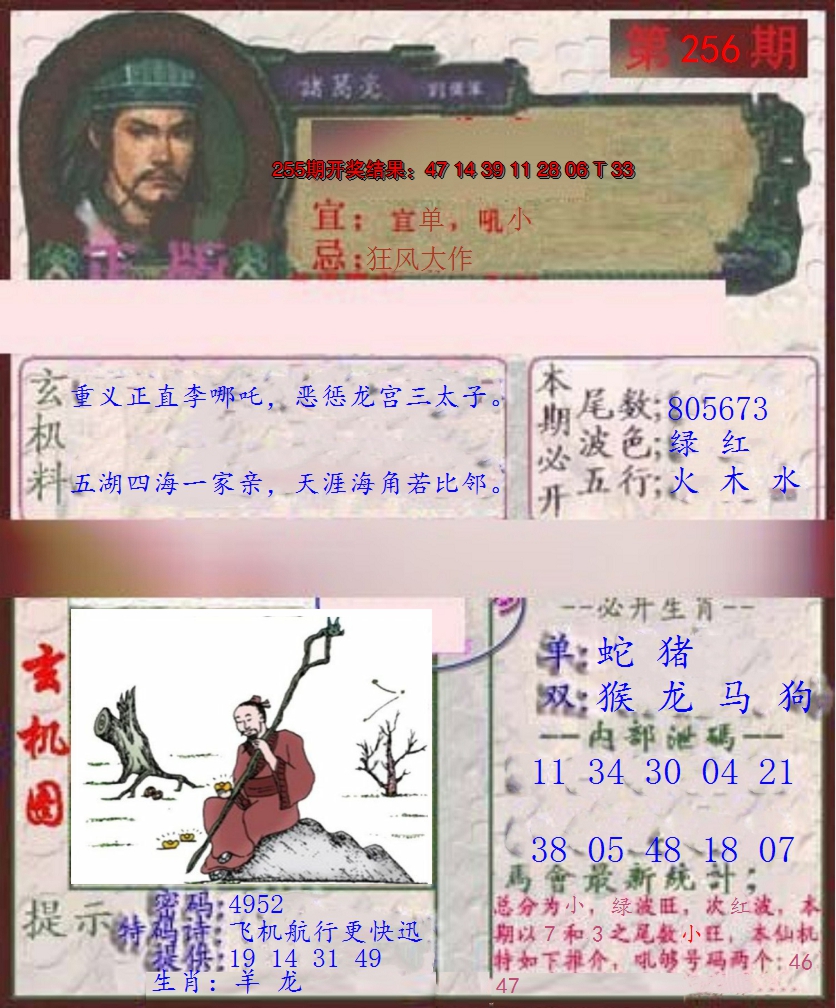 第 256 期
諸葛亮
255期开奖结果：47 14 39 11 28 06 T 33
宜：宜单，吼小
忌：狂风大作
正版
玄机料
重义正直李哪吒，恶惩龙宫三太子。
五湖四海一家亲，天涯海角若比邻。
本期必开
尾数；805673
波色；绿 红
五行；火 木 水
玄机图
--必开生肖--
单：蛇 猪
双：猴 龙 马 狗
一内部泄碼一
11 34 30 04 21
38 05 48 18 07
馬會最新統計；
总分为小，绿波旺，次红波，本
期以7和3之尾数小旺，本仙机
特如下推介，吼够号码两个：46
47
提示
密码：4952
特码诗：飞机航行更快迅
提供：19 14 31 49
生肖：羊 龙